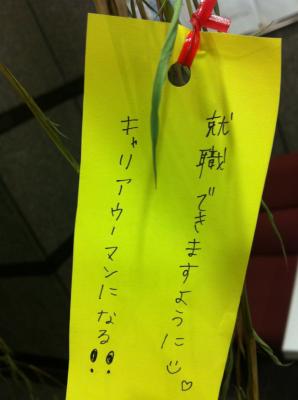 就職できますように☺♡
キャリアウーマンになる!!